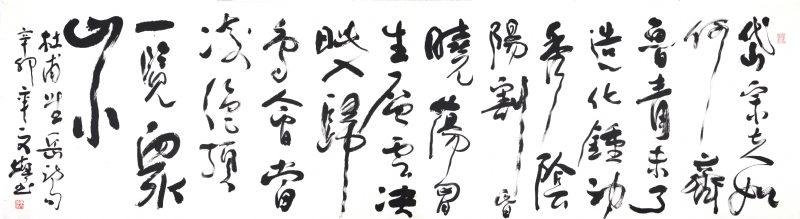 岱宗夫如
何齊
魯青未了
造化鍾神
秀陰
陽割昏
曉蕩胸
生層雲決
眥入歸
鳥會當
凌絕頂
一覽眾
山小
杜甫望岳詩句
辛卯 文 書